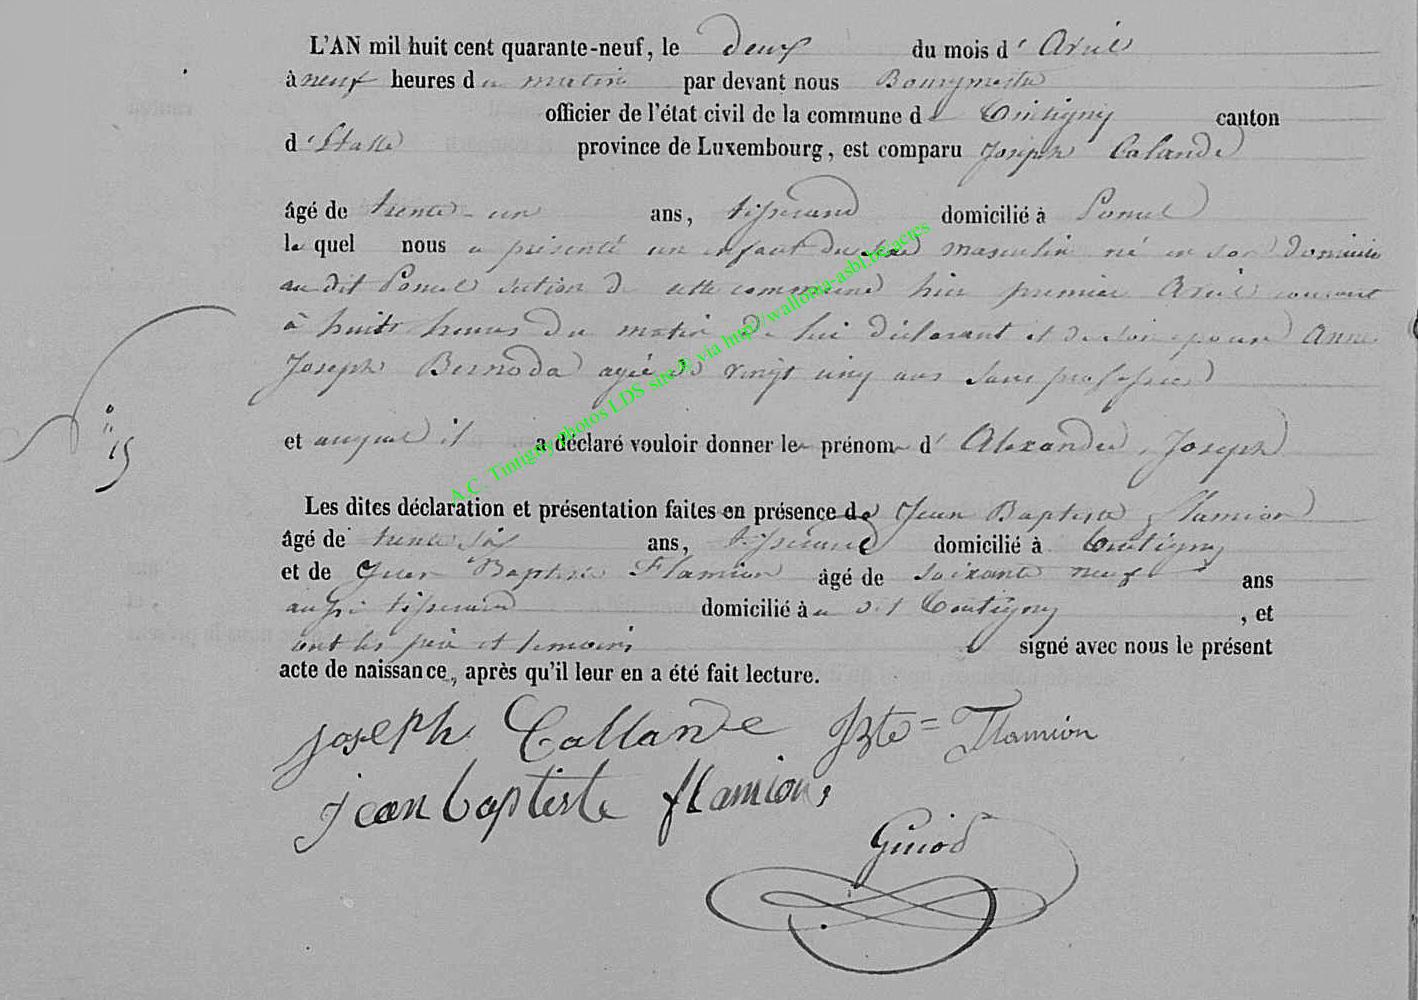 L'AN mil huit cent quarante-neuf, le deux du mois d' Avril
à neuf heures du matin par devant nous Bourgmestre
officier de l'état civil de la commune de Tintigny canton
d'Etalle province de Luxembourg, est comparu Joseph Calande
âgé de trente un ans, tisserand domicilié à Poncel
le quel nous a présenté un enfant du sexe masculin né en son domicile
au dit Poncel section de cette commune hier premier Avril courant
à huit heures du matin de lui déclarant et de son épouse Anne
Joseph Bernoda agée de vingt cinq ans sans profession
N° 15
et auquel il a déclaré vouloir donner le prénom d' Alexandre, Joseph
Les dites déclaration et présentation faites en présence de Jean Baptiste Flamion
âgé de trente six ans, tisserand domicilié à Tintigny
et de Jean Baptiste Flamion âgé de soixante neuf ans
aussi tisserand domicilié à u dit Tintigny, et
ont les père et temoins signé avec nous le présent
acte de naissance, après qu'il leur en a été fait lecture.
joseph Callande JBte = Flamion
jean baptiste flamion,
Giniod
A.C. Tintigny photos LDS site © via http://wallonia-asbl.be/actes